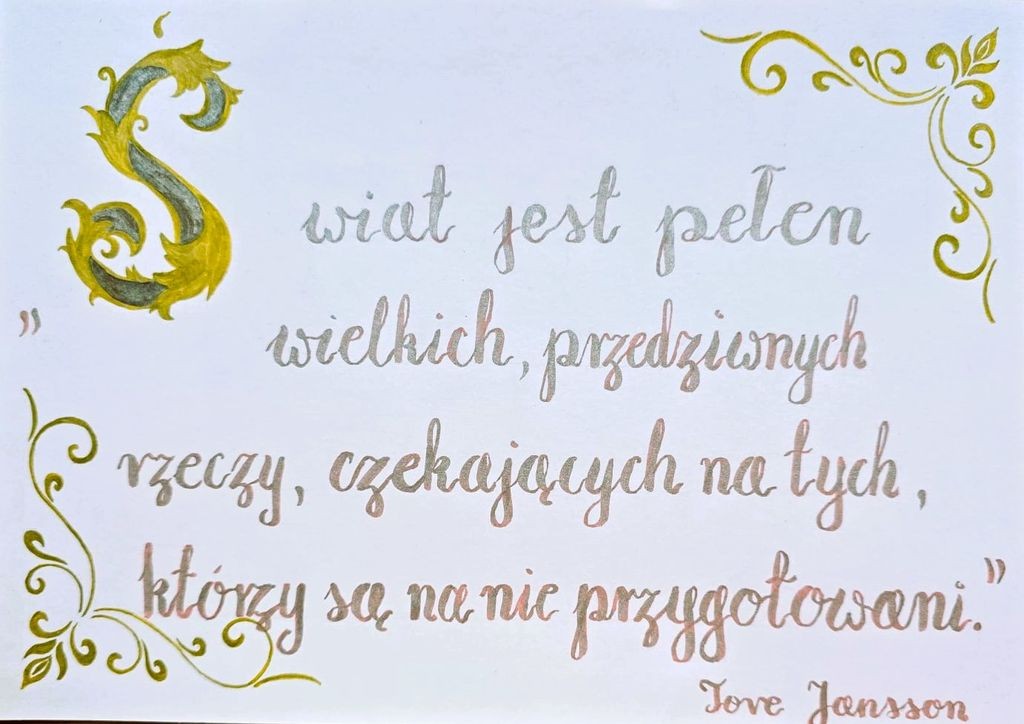 „Świat jest pełen
wielkich, przedziwnych
rzeczy, czekających na tych,
którzy są na nie przygotowani.”
Tove Jansson